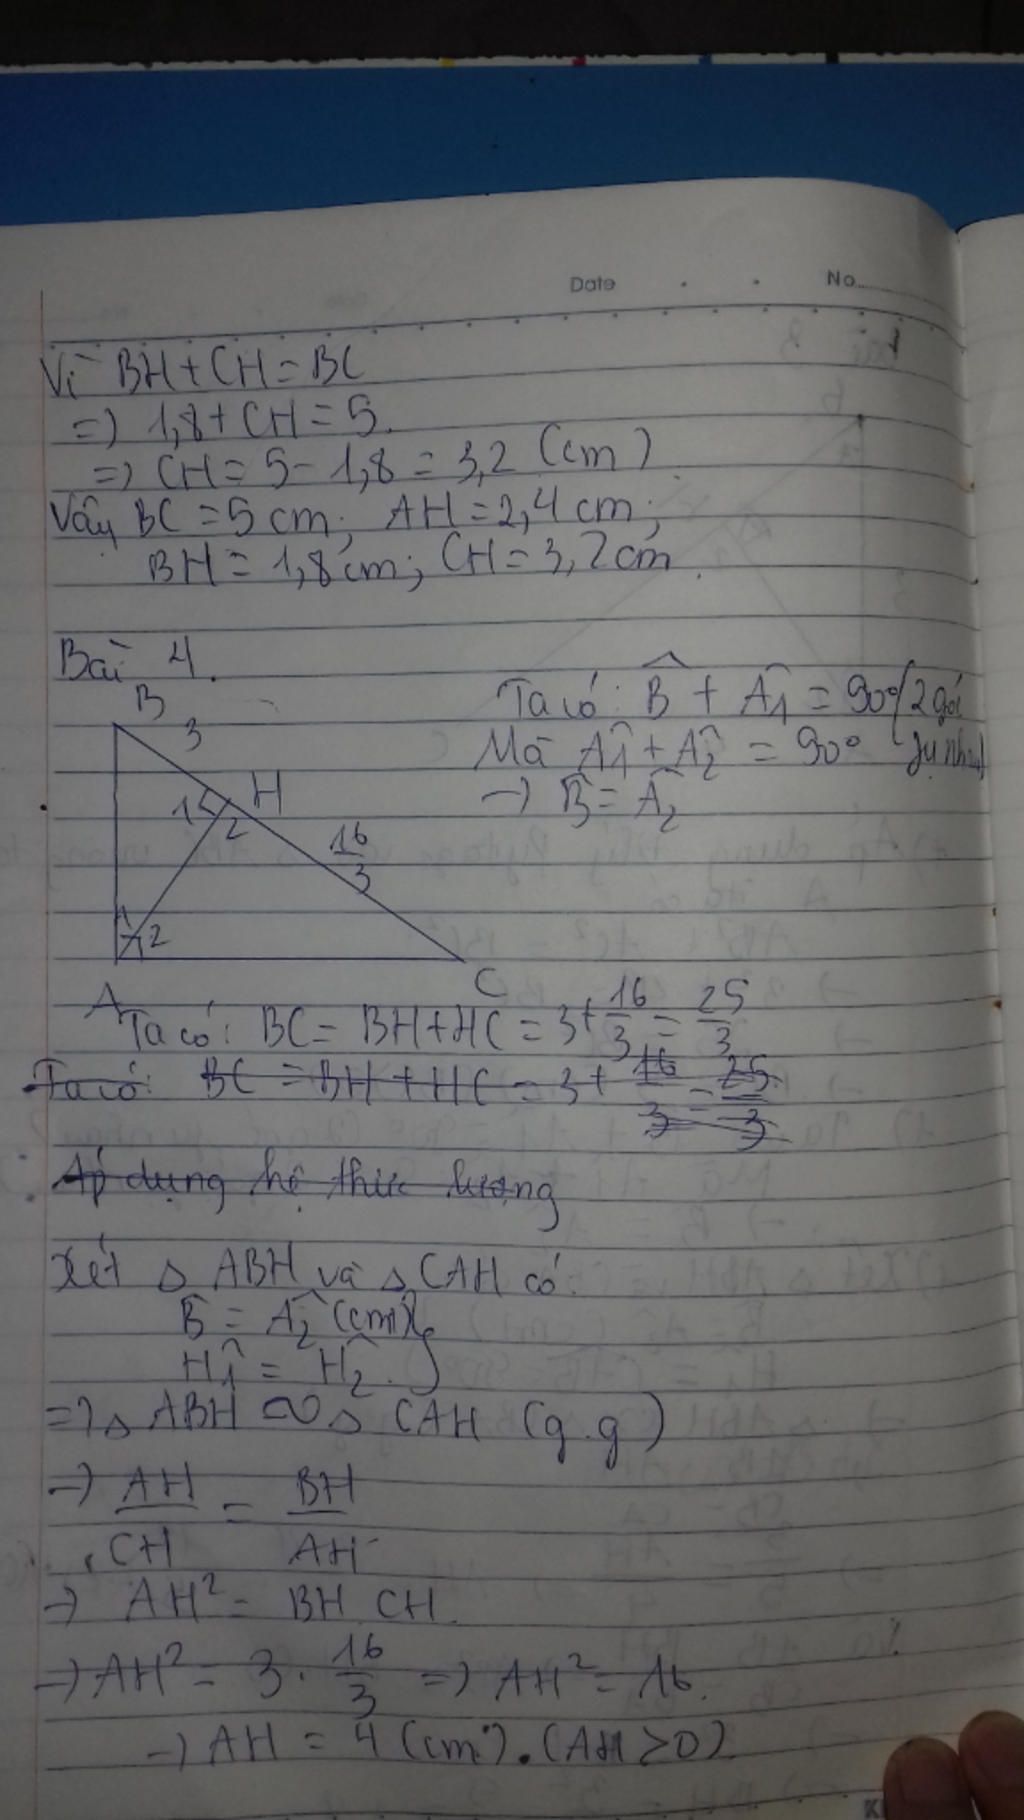 Date No.
Vì BH + CH = BC
=> 1,8 + CH = 5.
=> CH = 5 - 1,8 = 3,2 (cm)
Vậy BC = 5 cm; AH = 2,4 cm;
BH = 1,8 cm; CH = 3,2 cm.
Bài 4.
Ta có: B̂ + Â1 = 90° (2 góc
Mà Â1 + Â2 = 90° phụ nhau)
-> B̂ = Â2
B
3
H
1
2
16/3
1
2
A
C
Ta có: BC = BH + HC = 3 + 16/3 = 25/3
Ta có: BC = BH + HC = 3 + 16/3 = 25/3
Áp dụng hệ thức lượng
Xét △ ABH và △ CAH có:
B̂ = Â2 (cmt)
Ĥ1 = Ĥ2.
=> △ ABH ∽ △ CAH (g.g)
-> AH/CH = BH/AH
-> AH² = BH.CH.
-> AH² = 3 . 16/3 => AH² = 16.
-> AH = 4 (cm). (AH > 0)